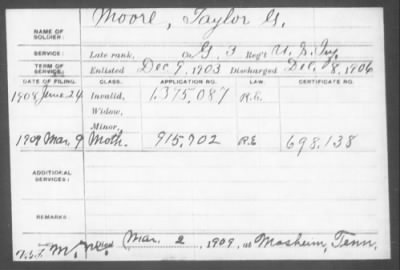 NAME OF SOLDIER: Moore, Taylor G.
SERVICE: Late rank, Co. G, 3 Reg't U.S. Inf.
TERM OF SERVICE: Enlisted Dec. 9, 1903 Discharged Dec. 8, 1906
DATE OF FILING. CLASS. APPLICATION NO. LAW. CERTIFICATE NO.
1908 June 24 Invalid, 1,375,087
Widow,
Minor,
1909 Mar. 9 Moth. 915,702 698,138
ADDITIONAL SERVICES:
REMARKS:
Mar. 2, 1909, at Mosheim, Tenn.